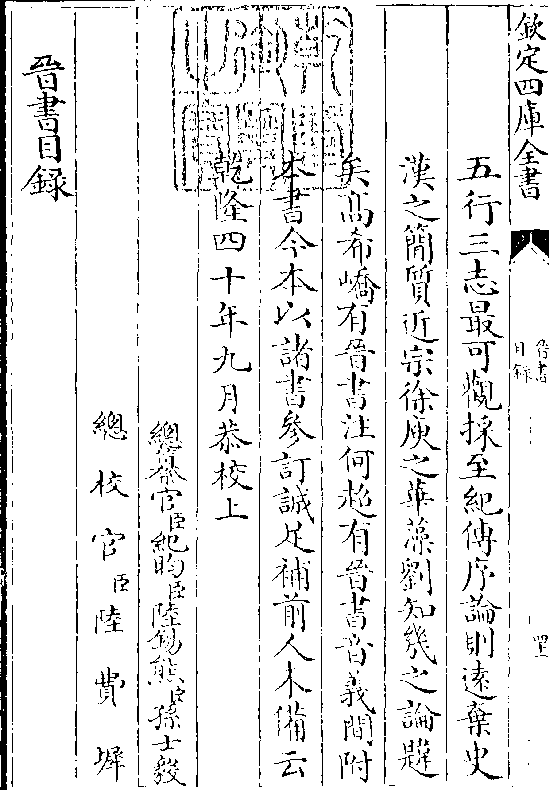 欽定四庫全書
晉書
目錄
五行三志最可觀採至紀傳序論則逺棄史
漢之簡質近宗徐庾之華藻劉知幾之論韙
矣髙希嶠有晉書注何超有晉書音義間附
本書今本以諸書參訂誠足補前人未備云
乾隆四十年九月恭校上
總纂官臣紀昀臣陸錫熊臣孫士毅
總校官臣陸費墀
晉書目錄